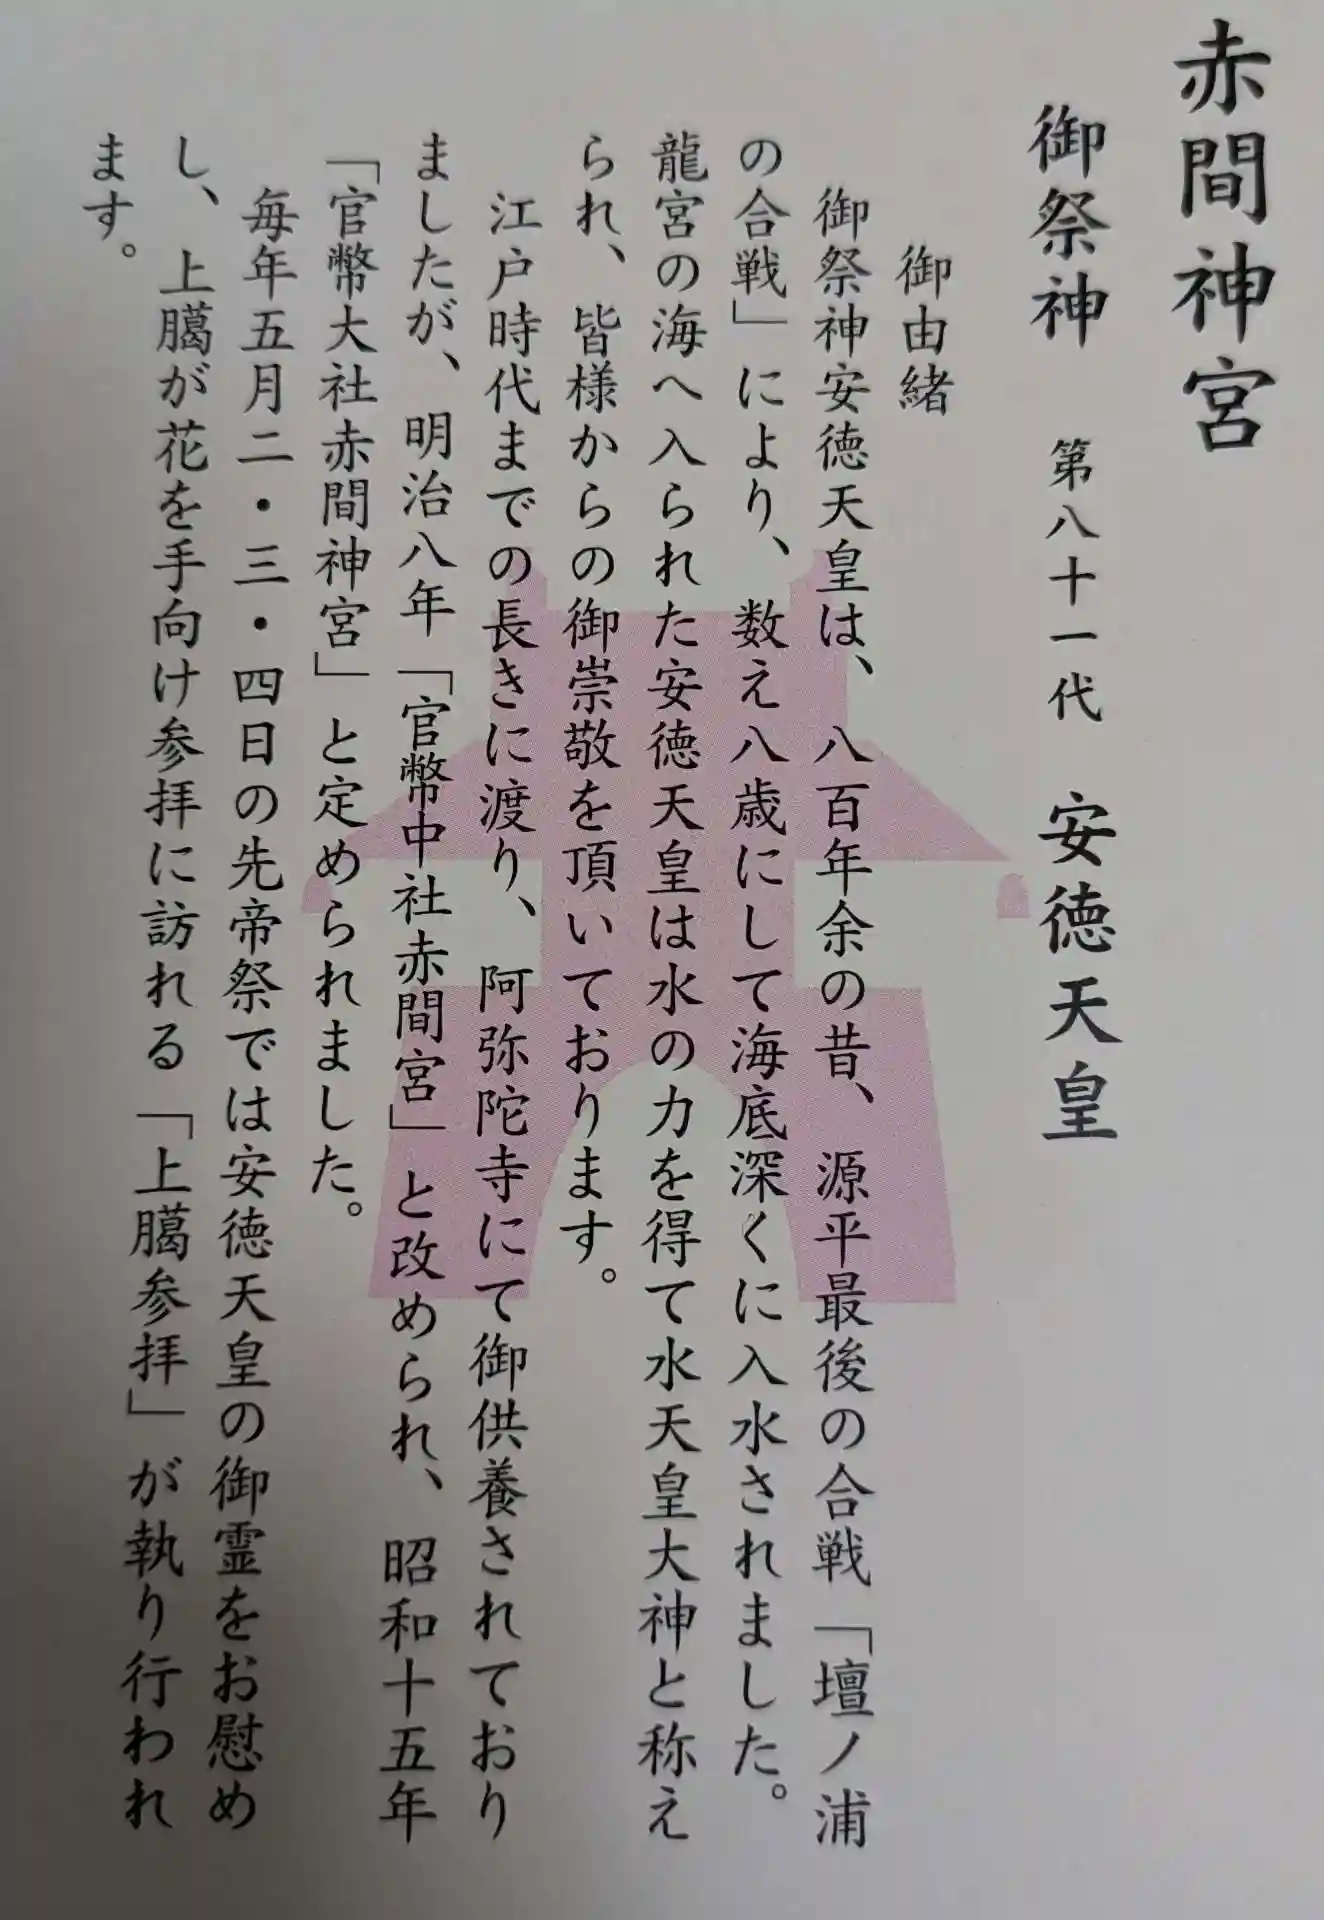 赤間神宮
御祭神　第八十一代　安徳天皇
御由緒
御祭神安徳天皇は、八百年余の昔、源平最後の合戦「壇ノ浦
の合戦」により、数え八歳にして海底深くに入水されました。
龍宮の海へ入られた安徳天皇は水の力を得て水天皇大神と称え
られ、皆様からの御崇敬を頂いております。
江戸時代までの長きに渡り、阿弥陀寺にて御供養されており
ましたが、明治八年「官幣中社赤間宮」と改められ、昭和十五年
「官幣大社赤間神宮」と定められました。
毎年五月二・三・四日の先帝祭では安徳天皇の御霊をお慰め
し、上臈が花を手向け参拝に訪れる「上臈参拝」が執り行われ
ます。